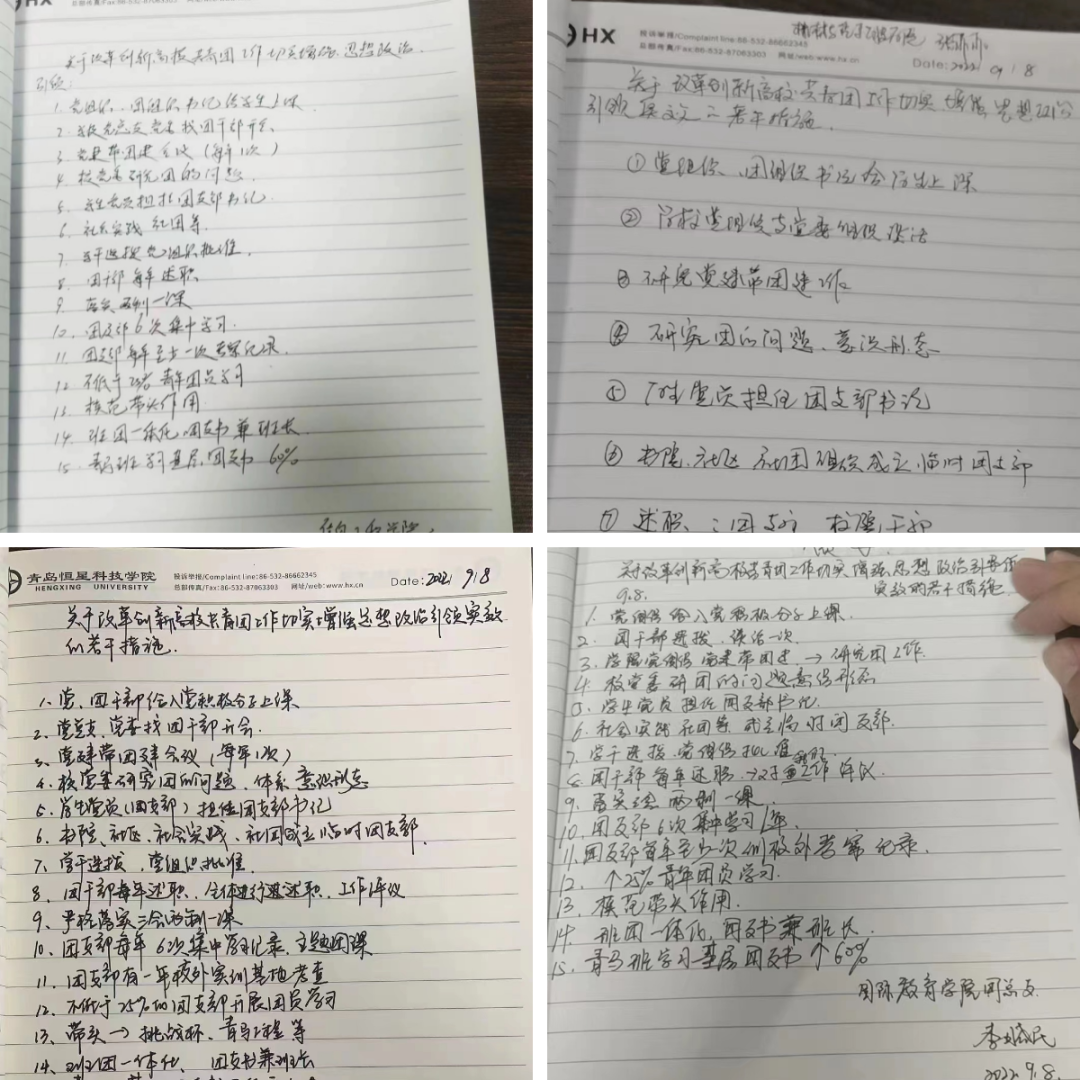 HX
总部传真/Fax:86-532-87063303 网址/web:www.hx.cn
关于改革创新高校共青团工作切实增强思想政治
引领:
1. 党组织、团组织书记给学生上课
2. 党委找团干部开会
3. 党建带团建会议(每年1次)
4. 校党委研究团的问题.
5. 学生党员担任团支部书记
6. 社会实践 社团等.
7. 学干选拔党组织批准.
8. 团干部每年述职
9. 落实两制一课
10. 团支部6次集中学习.
11. 团支部每年至少一次 记录.
12. 不低于 青年团员学习
13. 模范带头作用
14. 班团一体化,团支书兼班长
15. 青马班学习基层团支书 60%
HX
投诉举报/Complaint line:86-532-86662345
总部传真/Fax:86-532-87063303 网址/web:www.hx.cn
Date:2022/09/8
关于改革创新高校共青团工作切实增强思想政治
引领 若干措施.
① 党组织、团组织书记给学生上课
② 党组织与党委组织谈话
③ 研究党建带团建工作
④ 研究团的问题、意识形态
⑤ 学生党员担任团支部书记
⑥ 书院、社区、社团组织成立临时团支部
⑦ 述职、
青岛恒星科技学院
HENGXING UNIVERSITY
投诉举报/Complaint line:86-532-86662345
总部传真/Fax:86-532-87063303 网址/web:www.hx.cn
Date:2022/9/8
关于改革创新高校共青团工作切实增强思想政治引领实效
的若干措施.
1、党、团干部给入党积极分子上课
2、党总支、党委找团干部开会.
3、党建带团建会议(每年1次)
4、校党委研究团的问题、体系 意识形态
5、学生党员(团支部)担任团支部书记
6、书院、社区、社会实践、社团成立临时团支部.
7、学干选拔,党组织批准.
8、团干部每年述职、全体进行述职、工作评议
9、严格落实三会两制一课
10、团支部每年6次集中学习记录、主题团课
11、团支部有一年校外实训基地考查
12、不低于25%的团支部开展团员学习
13、带头→挑战杯、青马工程等
14、班团一体化、团支书兼班长
关于改革创新高校共青团工作切实增强思想政治引领
9.8. 实效的若干措施
1. 党组织给入党积极分子上课.
2. 团干部选拔、谈话一次
3. 学院党组织党建带团建→研究团工作.
4. 校党委研团的问题意识形态
5. 学生党员担任团支部书记.
6. 社会实践 社团等 成立临时团支部.
7. 学干选拔.党组织批准
8. 团干部每年述职 工作评议.
9. 落实 两制一课.
10. 团支部6次集中学习/年.
11. 团支部每年至少一次 校外 记录.
12. ↑25%青年团员学习.
13. 模范带头作用.
14. 班团一体化,团支书兼班长.
15. 青马班学习基层团支书↑60%
国际教育学院团总支
2022.9.8.